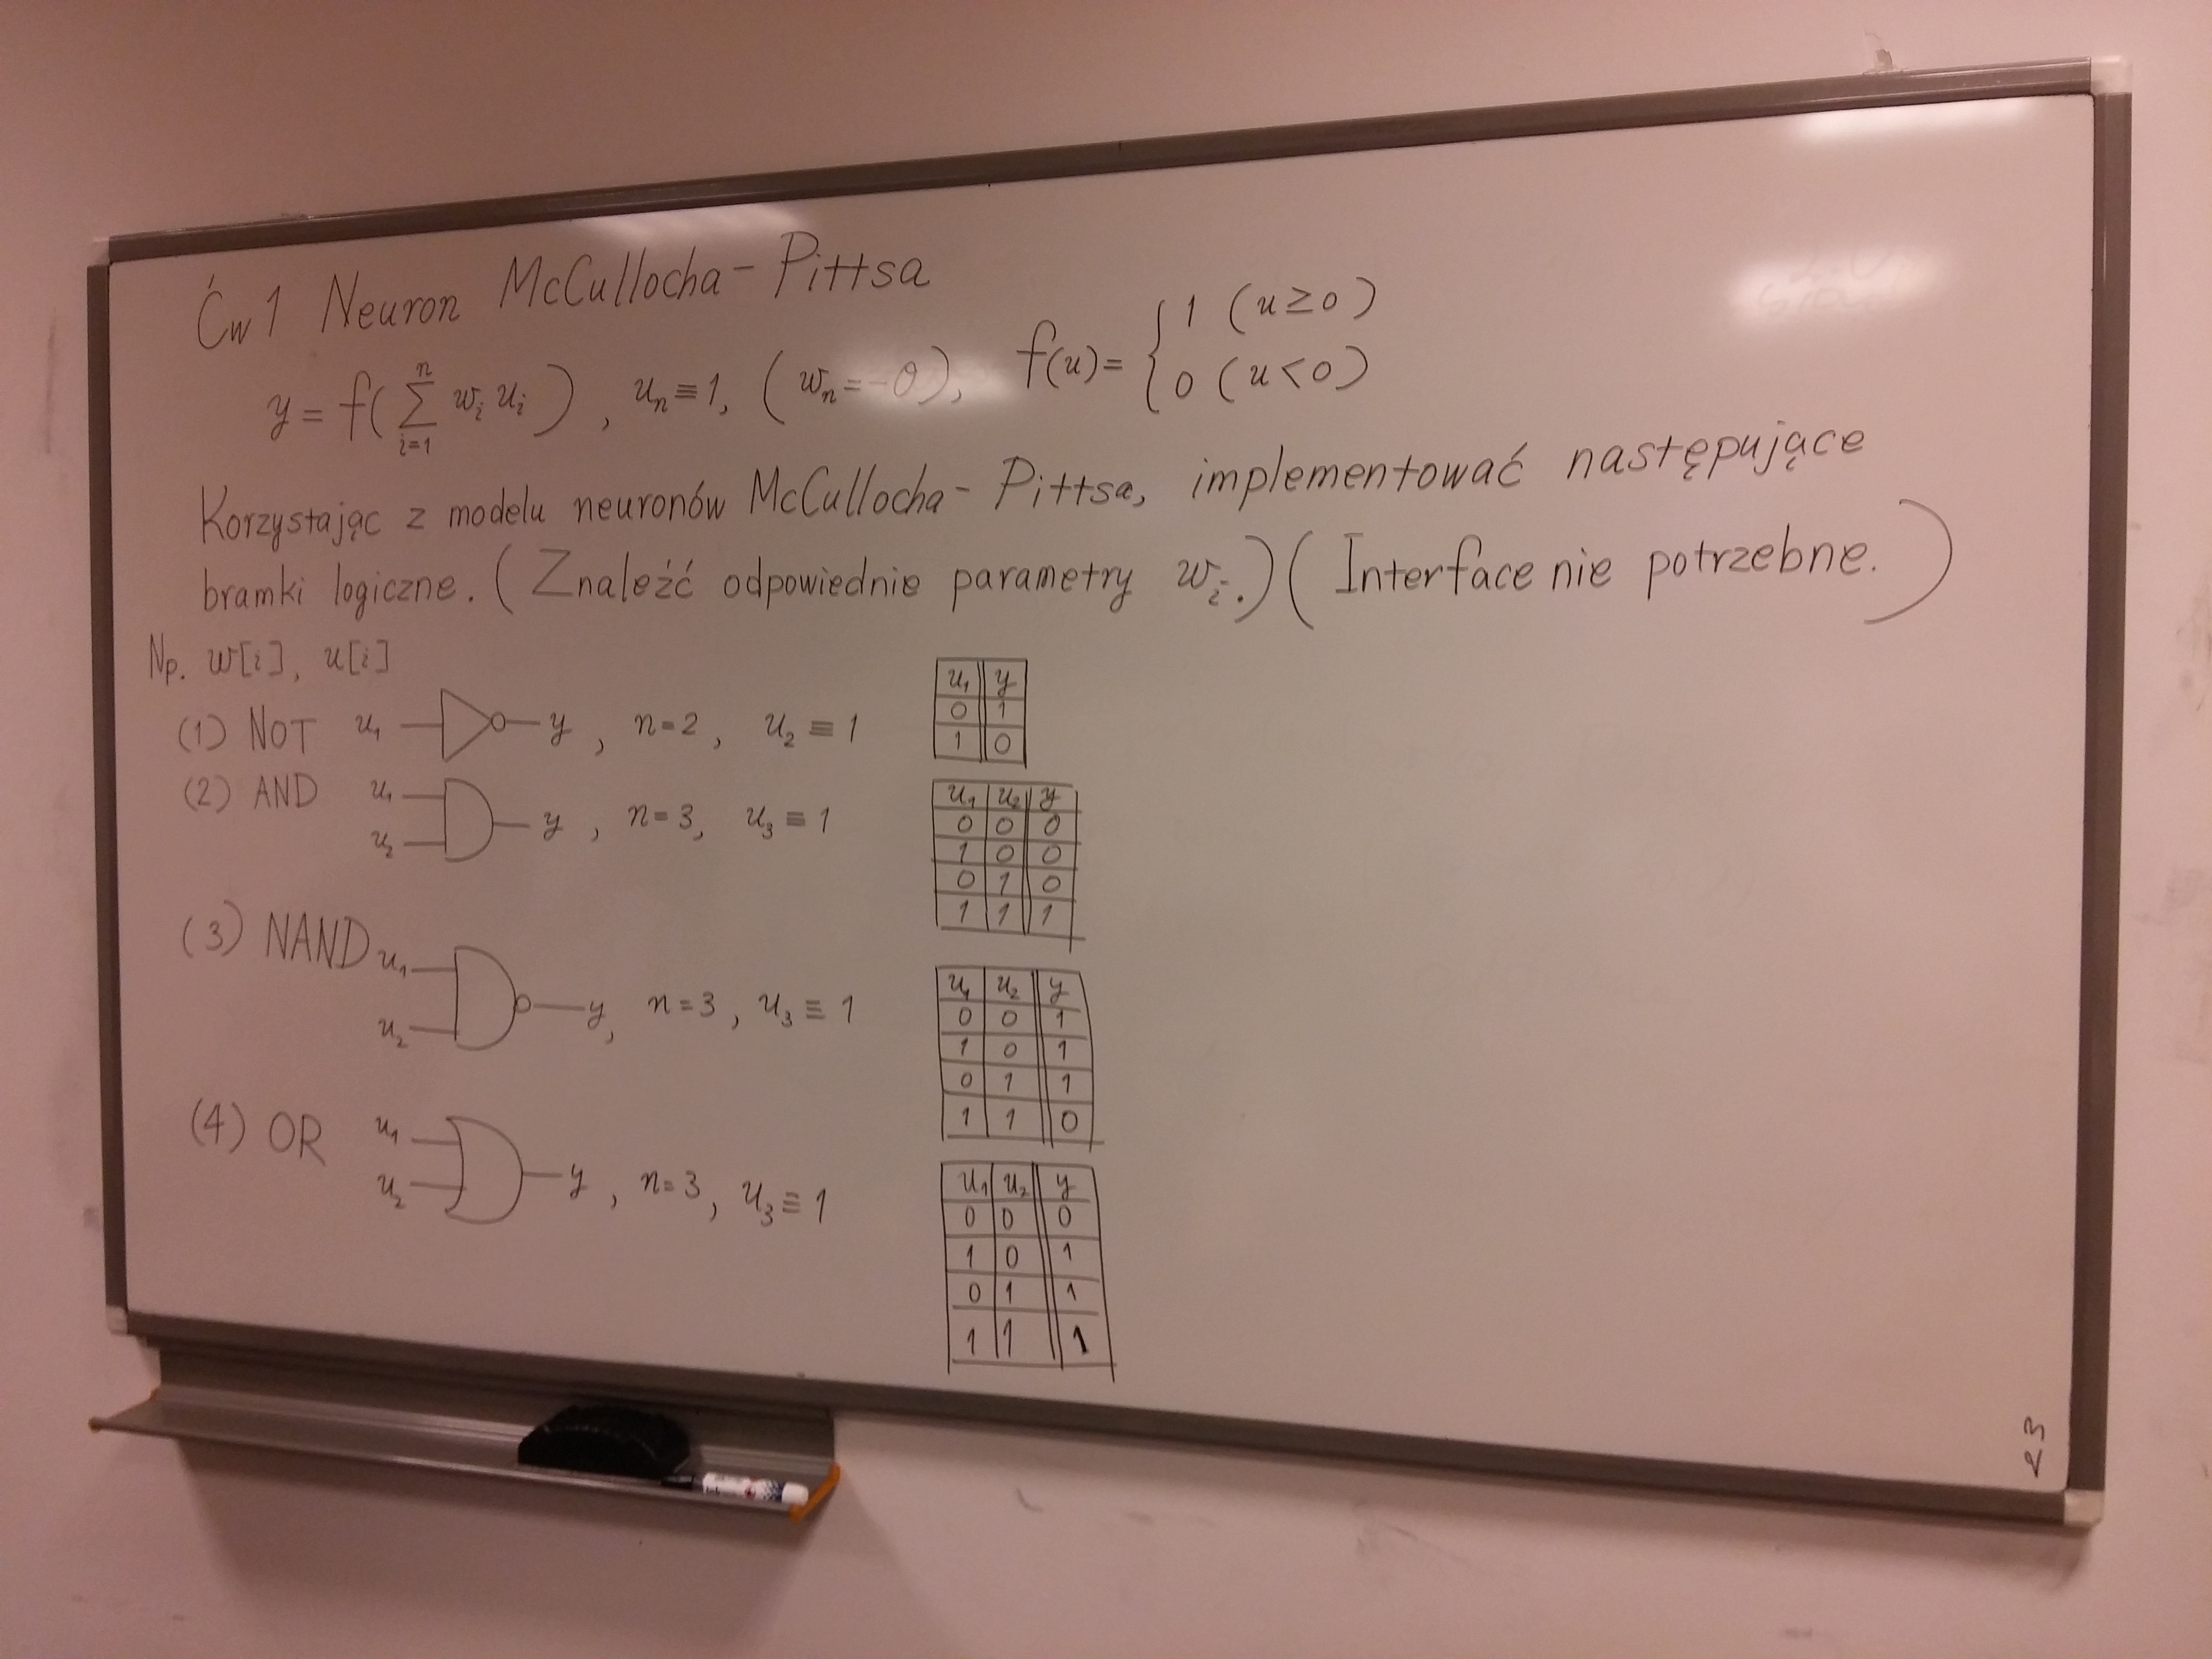 Ćw 1 Neuron McCullocha-Pittsa
y = f(∑_{i=1}^{n} w_i u_i), u_n ≡ 1, (w_n = -θ), f(u) = { 1 (u ≥ 0)
0 (u < 0)
Korzystając z modelu neuronów McCullocha-Pittsa, implementować następujące
bramki logiczne. (Znaleźć odpowiednie parametry w_i.) (Interface nie potrzebne.)
Np. w[i], u[i]
(1) NOT u₁ y, n=2, u₂ ≡ 1
u₁ y
0 1
1 0
(2) AND u₁ u₂ y, n=3, u₃ ≡ 1
u₁ u₂ y
0 0 0
1 0 0
0 1 0
1 1 1
(3) NAND u₁ u₂ y, n=3, u₃ ≡ 1
u₁ u₂ y
0 0 1
1 0 1
0 1 1
1 1 0
(4) OR u₁ u₂ y, n=3, u₃ ≡ 1
u₁ u₂ y
0 0 0
1 0 1
0 1 1
1 1 1
23